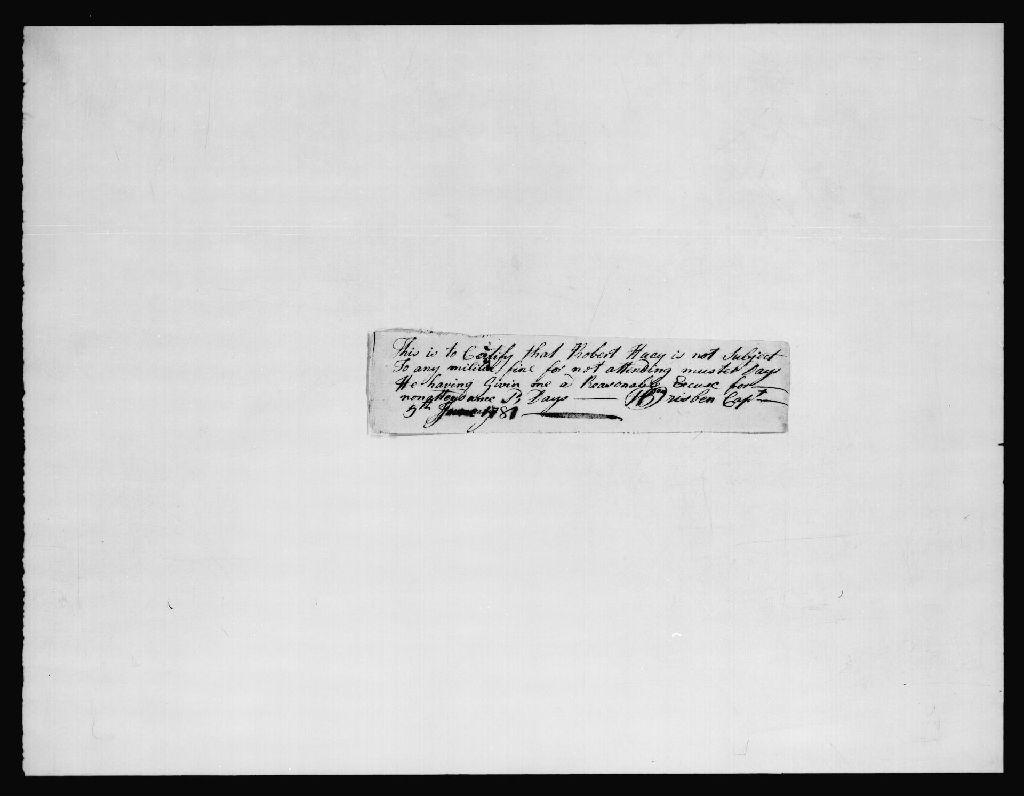 This is to Certify that Robert Huey is not Subject
To any militia fine for not attending muster Days
He having Givin me a Reasonable Excuse for
nonattendance 13 Days — Wm Brisben Capt
5th June 1781